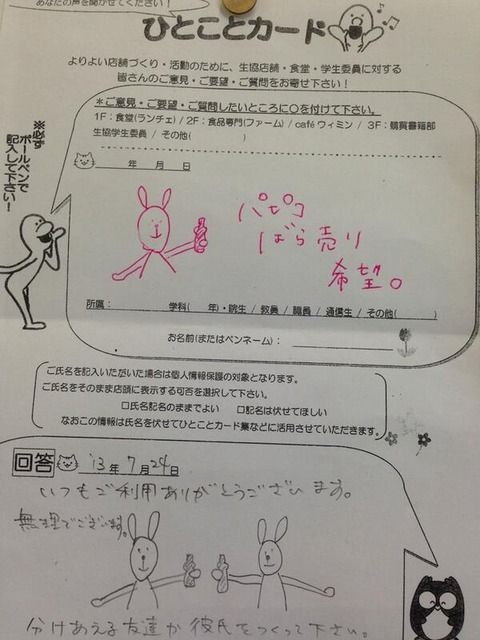 あなたの声を聞かせてください！
ひとことカード
よりよい店舗づくり・活動のために、生協店舗・食堂・学生委員に対する
皆さんのご意見・ご要望・ご質問をお寄せ下さい！
＊ご意見・ご要望・ご質問したいところに○を付けて下さい。
1F：食堂(ランチェ) / 2F：食品専門(ファーム) / caféウィミン / 3F：購買書籍部
生協学生委員 / その他(　　　)
※必ず
ボールペンで
記入して下さい！
年　月　日
パピコ
ばら売り
希望。
所属：　　　学科(　年)・院生 / 教員 / 職員 / 通信生 / その他(　　　)
お名前(またはペンネーム)：
ご氏名を記入いただいた場合は個人情報保護の対象となります。
ご氏名をそのまま店頭に表示する可否を選択して下さい。
□氏名記名のままでよい　□記名は伏せてほしい
なおこの情報は氏名を伏せてひとことカード集などに活用させていただきます。
回答　'13年 7月24日
いつもご利用ありがとうございます。
無理でございます。
分けあえる友達か彼氏をつくって下さい。